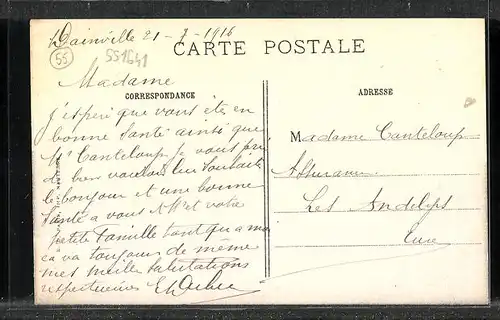 Dainville 21-7-1916
55
551641
CARTE POSTALE
Madame
CORRESPONDANCE
J'espère que vous êtes en
bonne santé ainsi que
Mr Canteloup je vous prie
de bien vouloir leur souhaiter
le bonjour et une bonne
santé a vous et votre
petite famille tant qu a moi
ça va toujours de meme
mes meille salutations
respectueuses
ADRESSE
Madame Canteloup
Assurances
Les Andelys
Eure